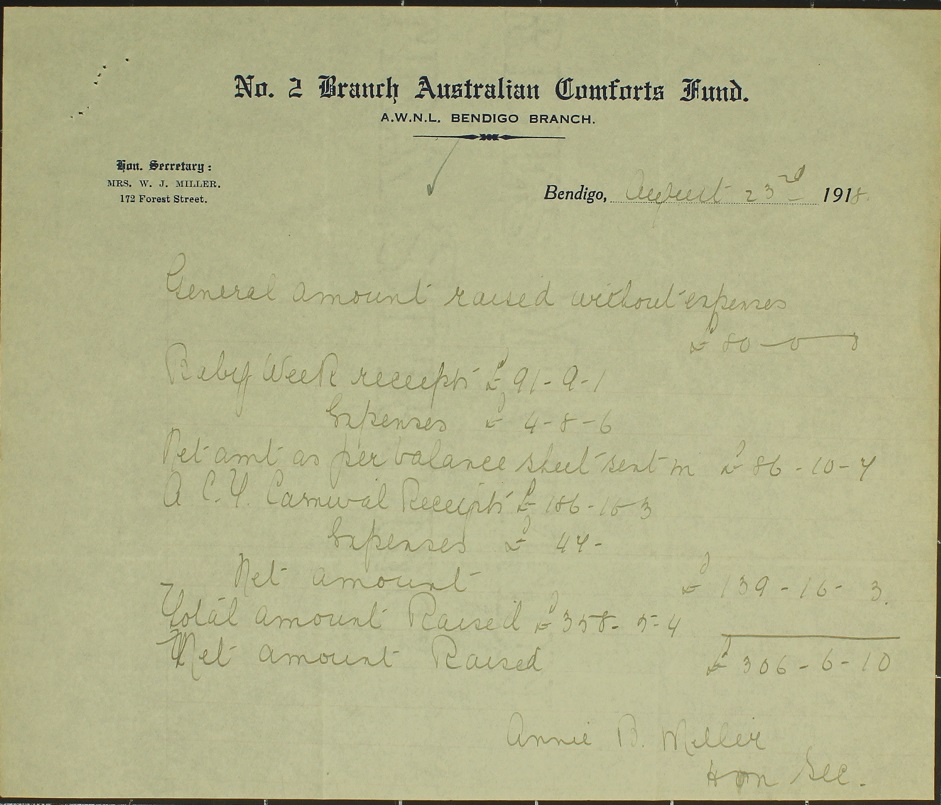 No. 2 Branch Australian Comforts Fund.
A.W.N.L. BENDIGO BRANCH.
Hon. Secretary:
MRS. W. J. MILLER.
172 Forest Street.
Bendigo, August 23rd 1918.
General amount raised without expenses
£ 80 - 0 - 0
Baby Week receipts £ 91 - 9 - 1
Expenses £ 4 - 8 - 6
Net amt as per balance sheet sent in £ 86 - 10 - 7
A C. F. Carnival Receipts £ 186 - 16 - 3
Expenses £ 47 -
Net amount £ 139 - 16 - 3.
Total amount Raised £ 358 - 5 - 4
Net amount Raised £ 306 - 6 - 10
Annie B. Miller
Hon Sec.